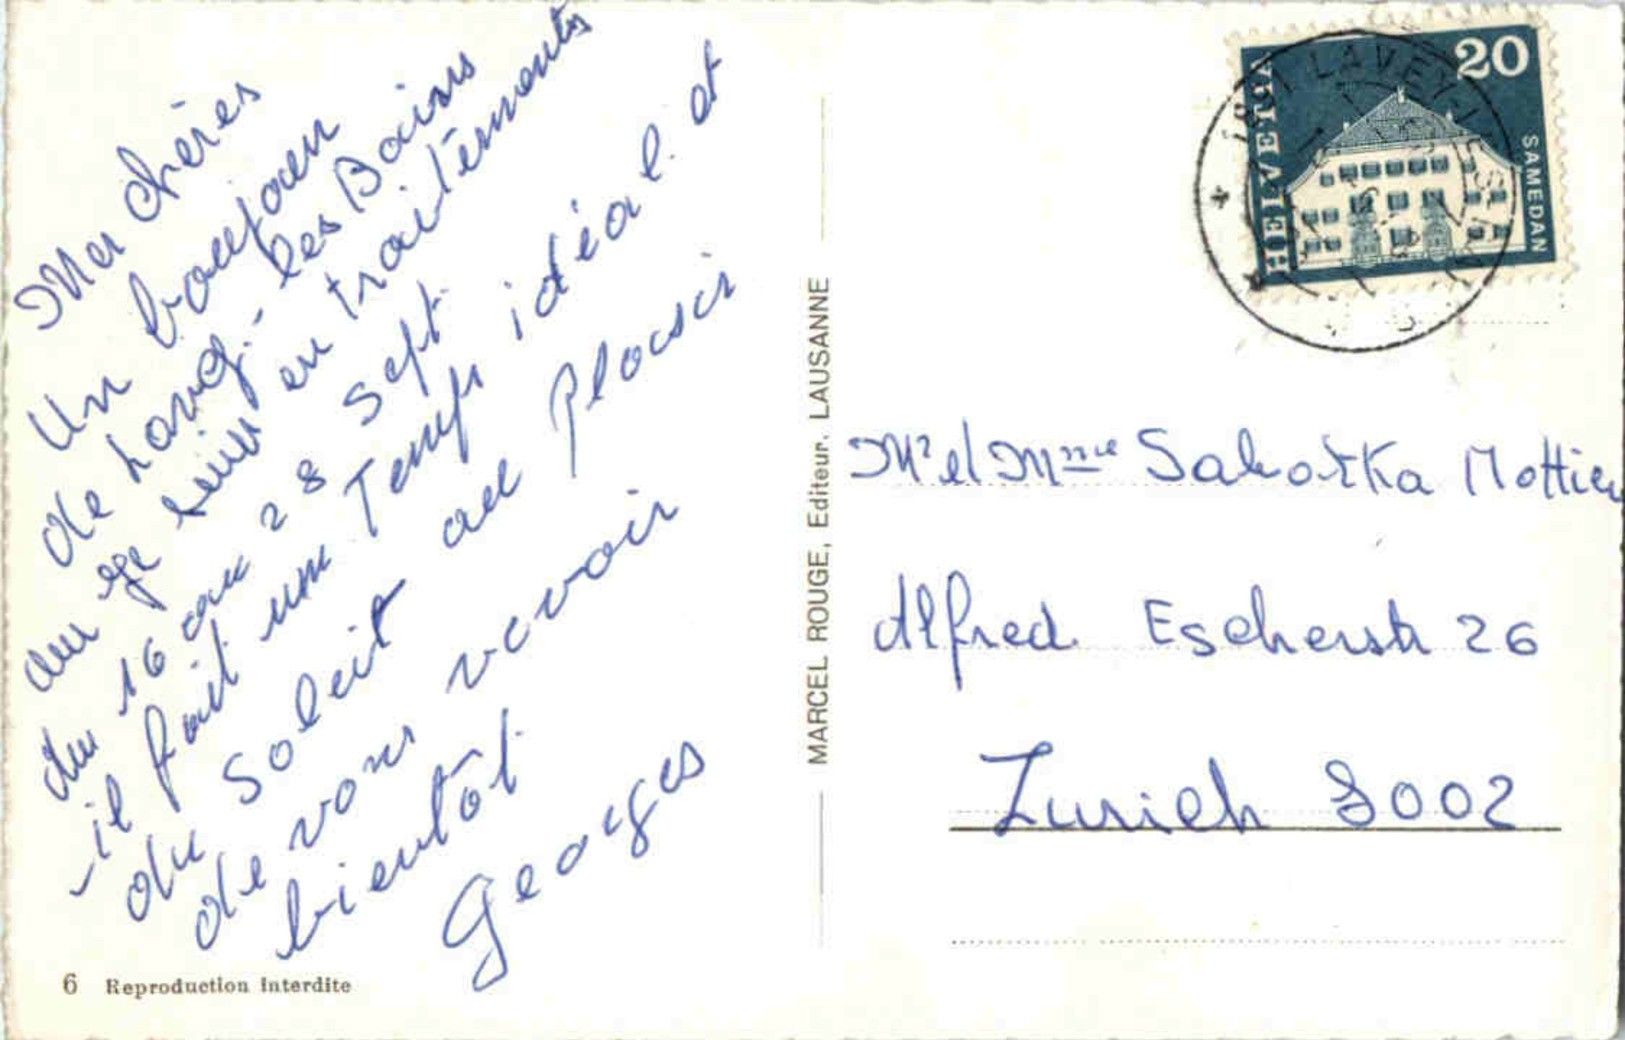 Mes chères
Un boujour
de Lavey-les Bains
ou je suis en traitements
du 16 au 28 Sept.
- il fait un Temps idéal et
du Soleil au Plaisir
de vous revoir
bientôt.
Georges
6 Reproduction Interdite
MARCEL ROUGE, Editeur, LAUSANNE
HELVETIA
20
SAMEDAN
1891 LAVEY-LES-
Mr et Mme Mottier
Alfred Escherstr 26
Zurich 8002